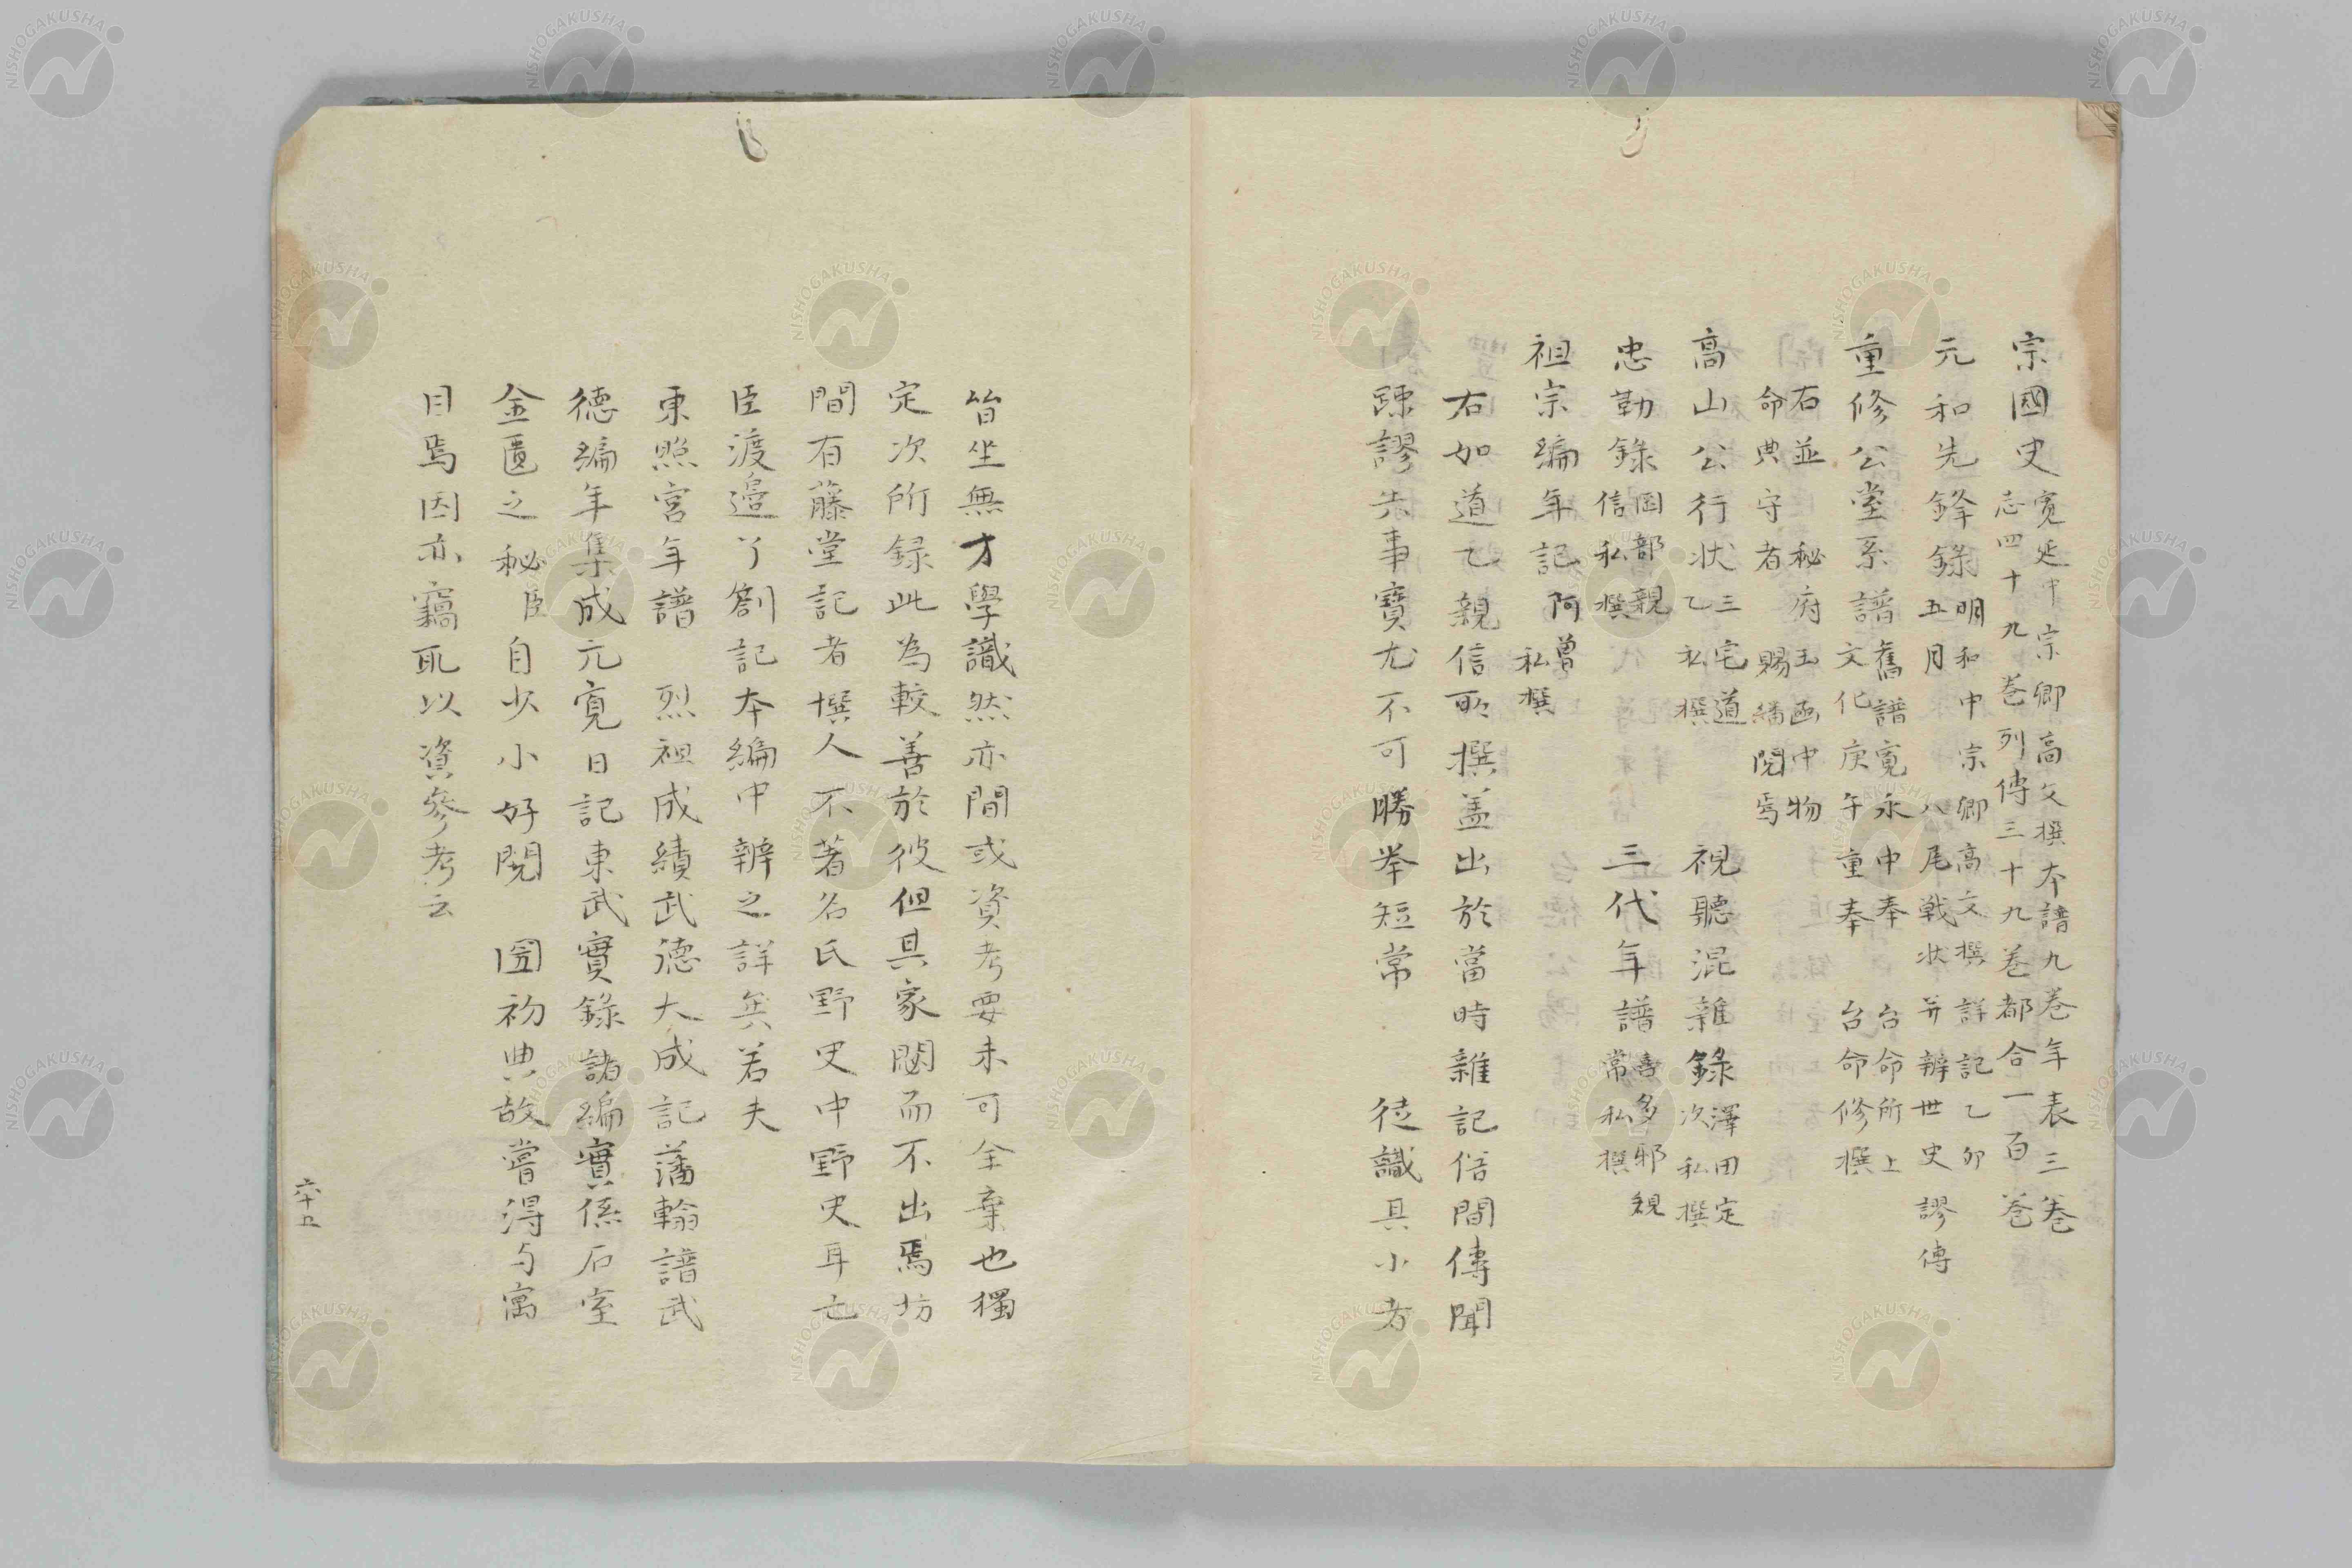 宗國史寛延中宗卿高文撰本譜九巻年表三巻
志四十九巻列傳三十九巻都合一百巻
元和先鋒錄明和中宗卿高文撰詳記乙卯
五月八尾戦状并辨世史謬傳
重修公室系譜舊譜寛永中奉台命所上
文化庚午重奉台命修撰
右並秘府玉函中物
命典守者賜繙閲焉
高山公行状三宅道
乙私撰
視聽混雜錄澤田定
次私撰
忠勤錄岡部親
信私撰
三代年譜喜多邨親
常私撰
祖宗編年記阿曽
私撰
右如道乙親信所撰盖出於當時雜記俗間傳聞
踈謬失事實尤不可勝挙短常徒識其小者
皆坐無才學識然亦間或資考要未可全棄也獨
定次所録此為較善於彼但具家閟而不出焉坊
間有藤堂記者撰人不著名氏野史中野史耳亡
臣渡邉丫劄記本編中辨之詳矣若夫
東照宮年譜烈祖成績武徳大成記藩翰譜武
徳編年集成元寛日記東武實錄諸編實係石室
金匱之秘臣自少小好閲國初典故嘗得与寓
目焉因亦竊耴以資參考云
六十五
NISHOGAKUSHA